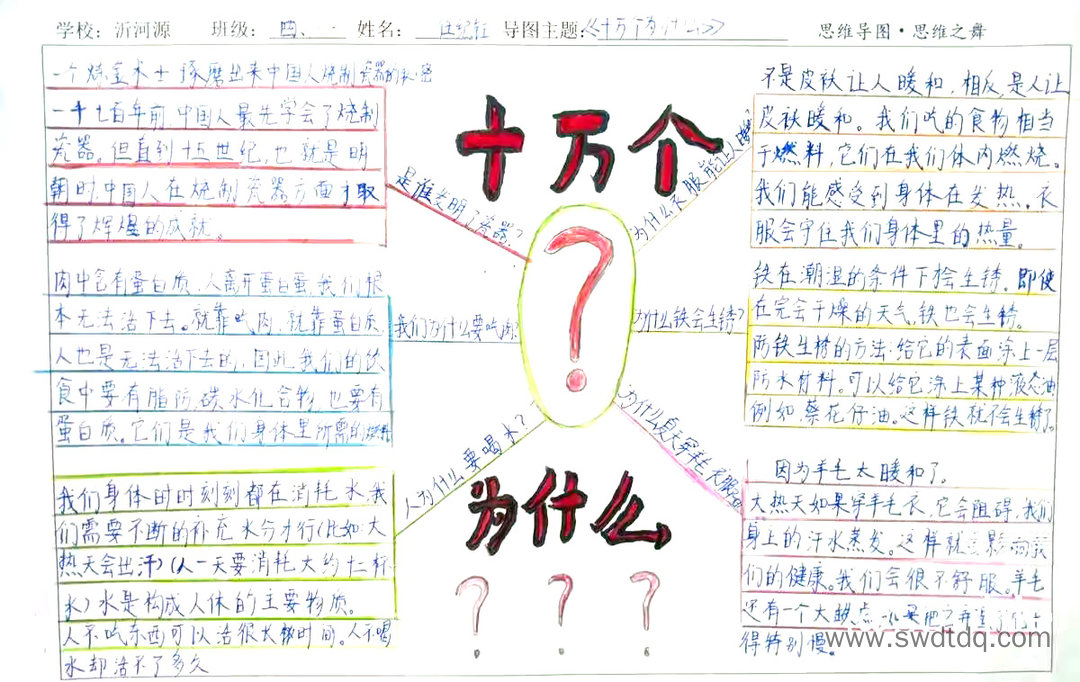 学校：沂河源 班级：四、一 姓名： 导图主题：《十万个为什么》 思维导图·思维之舞
一个炼金术士琢磨出来中国人烧制瓷器的秘密
一千七百年前,中国人最先学会了烧制
瓷器。但直到十五世纪,也就是明
朝时,中国人在烧制瓷器方面才取
得了辉煌的成就。
是谁发明了瓷器?
肉中含有蛋白质,人离开蛋白蛋,我们根
本无法活下去。就靠吃肉,就靠蛋白质,
人也是无法活下去的,因此,我们的饮
食中要有脂肪,碳水化合物,也要有
蛋白质。它们是我们身体里所需的燃料
我们为什么要吃肉?
我们身体时时刻刻都在消耗水,我
们需要不断的补充水分才行(比如:大
热天会出汗)(人一天要消耗大约十二杯
水)水是构成人体的主要物质。
人不吃东西可以活很长时间。人不喝
水却活不了多久
人为什么要喝水?
十万个
?
为什么
? ? ?
为什么衣服能让人暖和?
不是皮袄让人暖和,相反,是人让
皮袄暖和。我们吃的食物相当
于燃料,它们在我们体内燃烧。
我们能感受到身体在发热。衣
服会守住我们身体里的热量。
为什么铁会生锈?
铁在潮湿的条件下会生锈。即使
在完会干燥的天气,铁也会生锈。
防铁生锈的方法:给它的表面涂上一层
防水材料。可以给它涂上某种液态油
例如菜花仔油。这样铁就不会生锈了。
为什么夏天穿毛衣服
因为羊毛太暖和了。
大热天如果穿羊毛衣,它会阻碍,我们
身上的汗水蒸发。这样就会影响我
们的健康。我们会很不舒服。羊毛
还有一个大缺点
得特别慢。
www.swdtdq.com